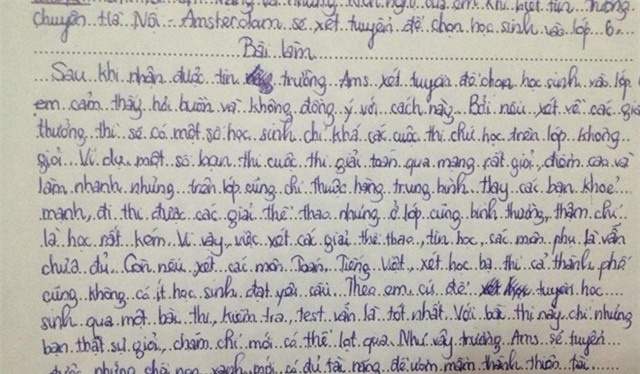 của em khi biết tin trường
chuyên Hà Nội - Amsterdam sẽ xét tuyển để chọn học sinh vào lớp 6.
Bài làm
Sau khi nhận được tin trường Ams xét tuyển để chọn học sinh vào lớp
em cảm thấy hơi buồn và không đồng ý với cách này. Bởi nếu xét về các giải
thưởng thì sẽ có một số học sinh chỉ khá các cuộc thi chứ học trên lớp không
giỏi. Ví dụ một số bạn thi cuộc thi giải toán qua mạng rất giỏi, điểm cao và
làm nhanh nhưng trên lớp cũng chỉ thuộc hạng trung bình. Hay các bạn khoẻ
mạnh, đi thi được các giải thể thao nhưng ở lớp cũng bình thường, thậm chí
là học rất kém. Vì vậy, việc xét các giải thể thao, tin học, các môn phụ là vẫn
chưa đủ. Còn nếu xét các môn Toán, Tiếng Việt, xét học bạ thì cả thành phố
cũng không có ít học sinh đạt yêu cầu. Theo em cứ để tuyển học
sinh qua một bài thi, kiểm tra, test vẫn là tốt nhất. Với bài thi này chỉ những
bạn thật sự giỏi, chăm chỉ mới có thể lọt qua. Như vậy trường Ams sẽ tuyển
được những chồi non xanh mới có đủ tài năng để ươm mầm thành thiên tài